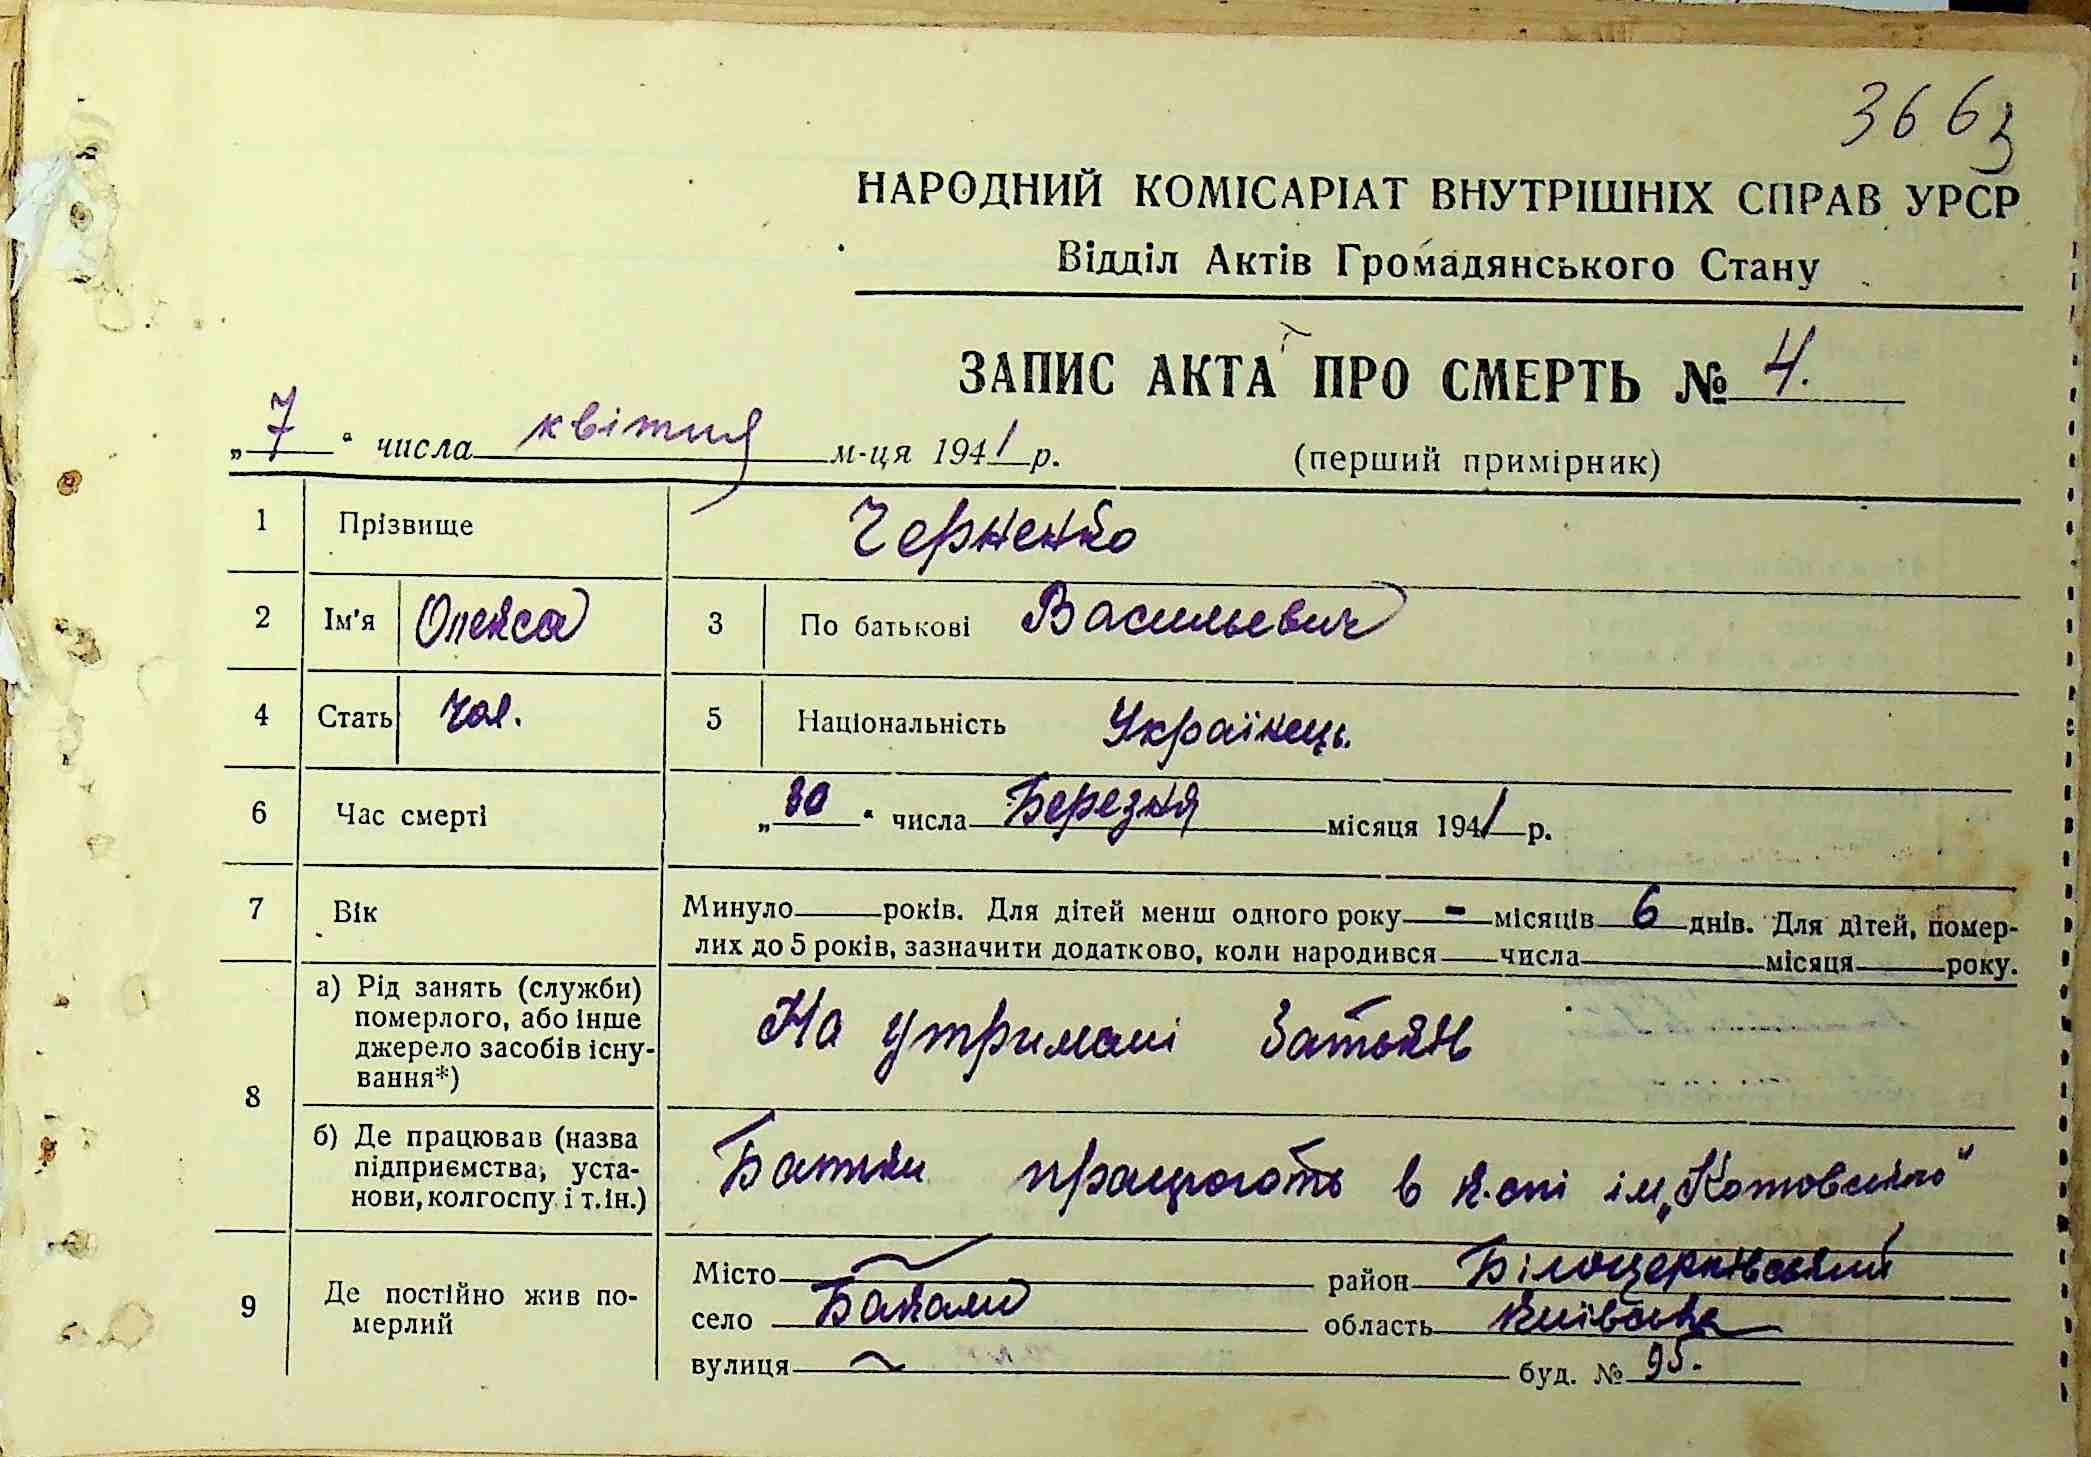 3663
НАРОДНИЙ КОМІСАРІАТ ВНУТРІШНІХ СПРАВ УРСР
Відділ Актів Громадянського Стану
ЗАПИС АКТА ПРО СМЕРТЬ № 4.
„7“ числа квітня м-ця 1941 р. (перший примірник)
1 Прізвище Черненко
2 Ім'я Олекса 3 По батькові Васильевич
4 Стать чол. 5 Національність Українець.
6 Час смерті „30“ числа Березня місяця 1941 р.
7 Вік Минуло років. Для дітей менш одного року - місяців 6 днів. Для дітей, помер-
лих до 5 років, зазначити додатково, коли народився числа місяця року.
8 а) Рід занять (служби)
померлого, або інше
джерело засобів існу-
вання*) На утримані Батьків
б) Де працював (назва
підприємства, уста-
нови, колгоспу і т.ін.) Батьки працюють в к-спі ім. „Котовського“
9 Де постійно жив по-
мерлий
Місто район Білоцерківський
село область Київська
вулиця буд. № 95.